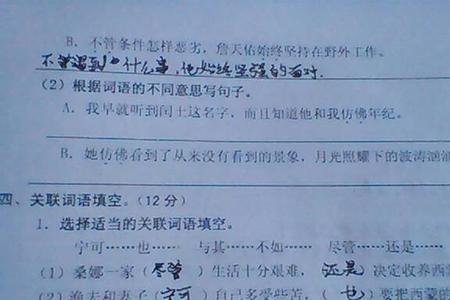 B. 不管条件怎样恶劣，詹天佑始终坚持在野外工作。
不管遇到什么事，他始终坚强的面对.
(2) 根据词语的不同意思写句子。
A. 我早就听到闰土这名字，而且知道他和我仿佛年纪。
B. 她仿佛看到了从来没有看到的景象，月光照耀下的波涛汹涌
四、关联词语填空。(12 分)
1. 选择适当的关联词语填空。
宁可……也…… 与其……不如…… 尽管……还是……
(1) 桑娜一家 (尽管) 生活十分艰难， 还是 决定收养西
(2) 渔夫和妻子 (宁可) 自己多受些苦， (也) 要把西蒙的